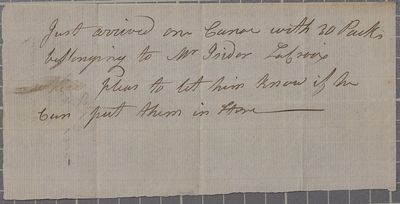 Just arrived one Canoe with 30 Packs
bellonging to Mr Isidor LaCroix
Pleas to let him Know if he
Can put them in Store